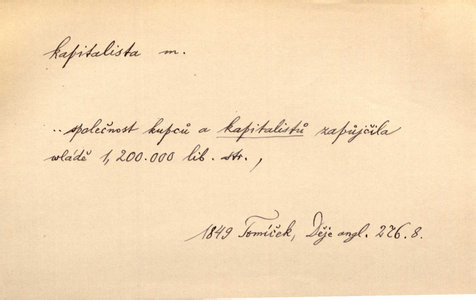 kapitalista m.
.. společnost kupců a kapitalistů zapůjčila
vládě 1,200.000 lib. str.,
1849 Tomíček, Děje angl. 276.8.